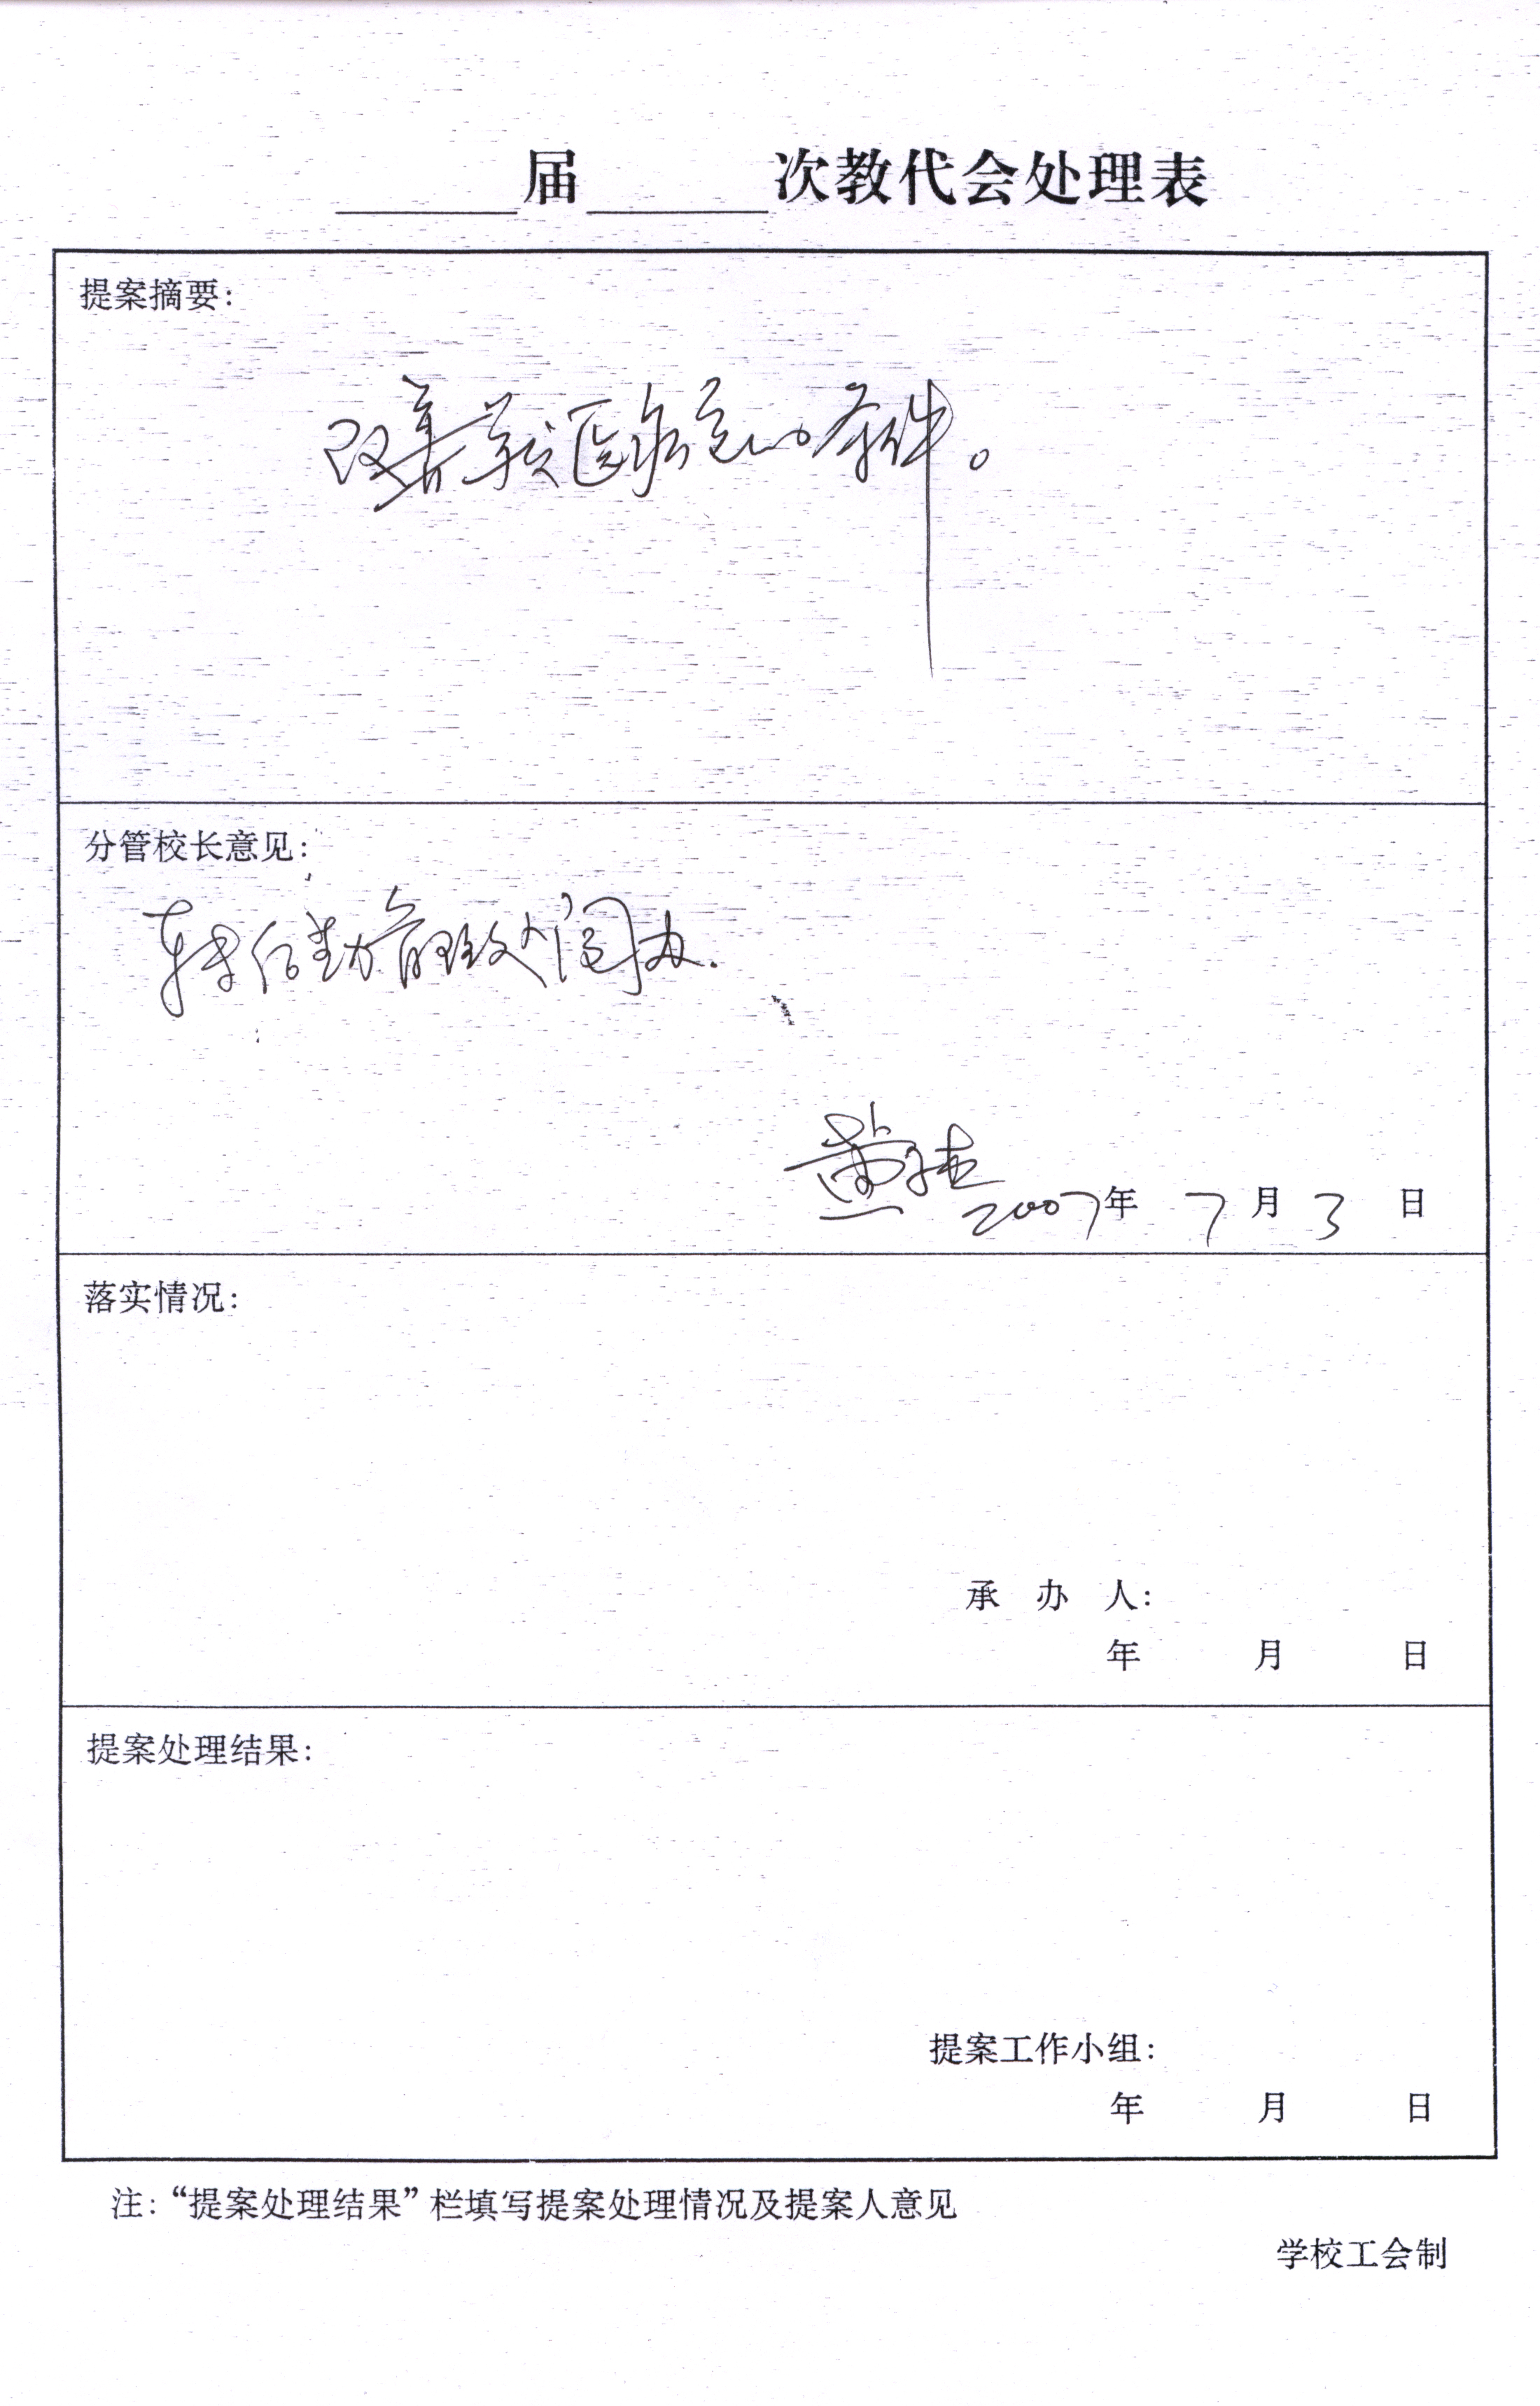 届 次教代会处理表
提案摘要：
改善学校医疗室的条件。
分管校长意见：
转后勤管理处阅办.
2007年 7月 3 日
落实情况：
承 办 人：
年 月 日
提案处理结果：
提案工作小组：
年 月 日
注：“提案处理结果”栏填写提案处理情况及提案人意见
学校工会制